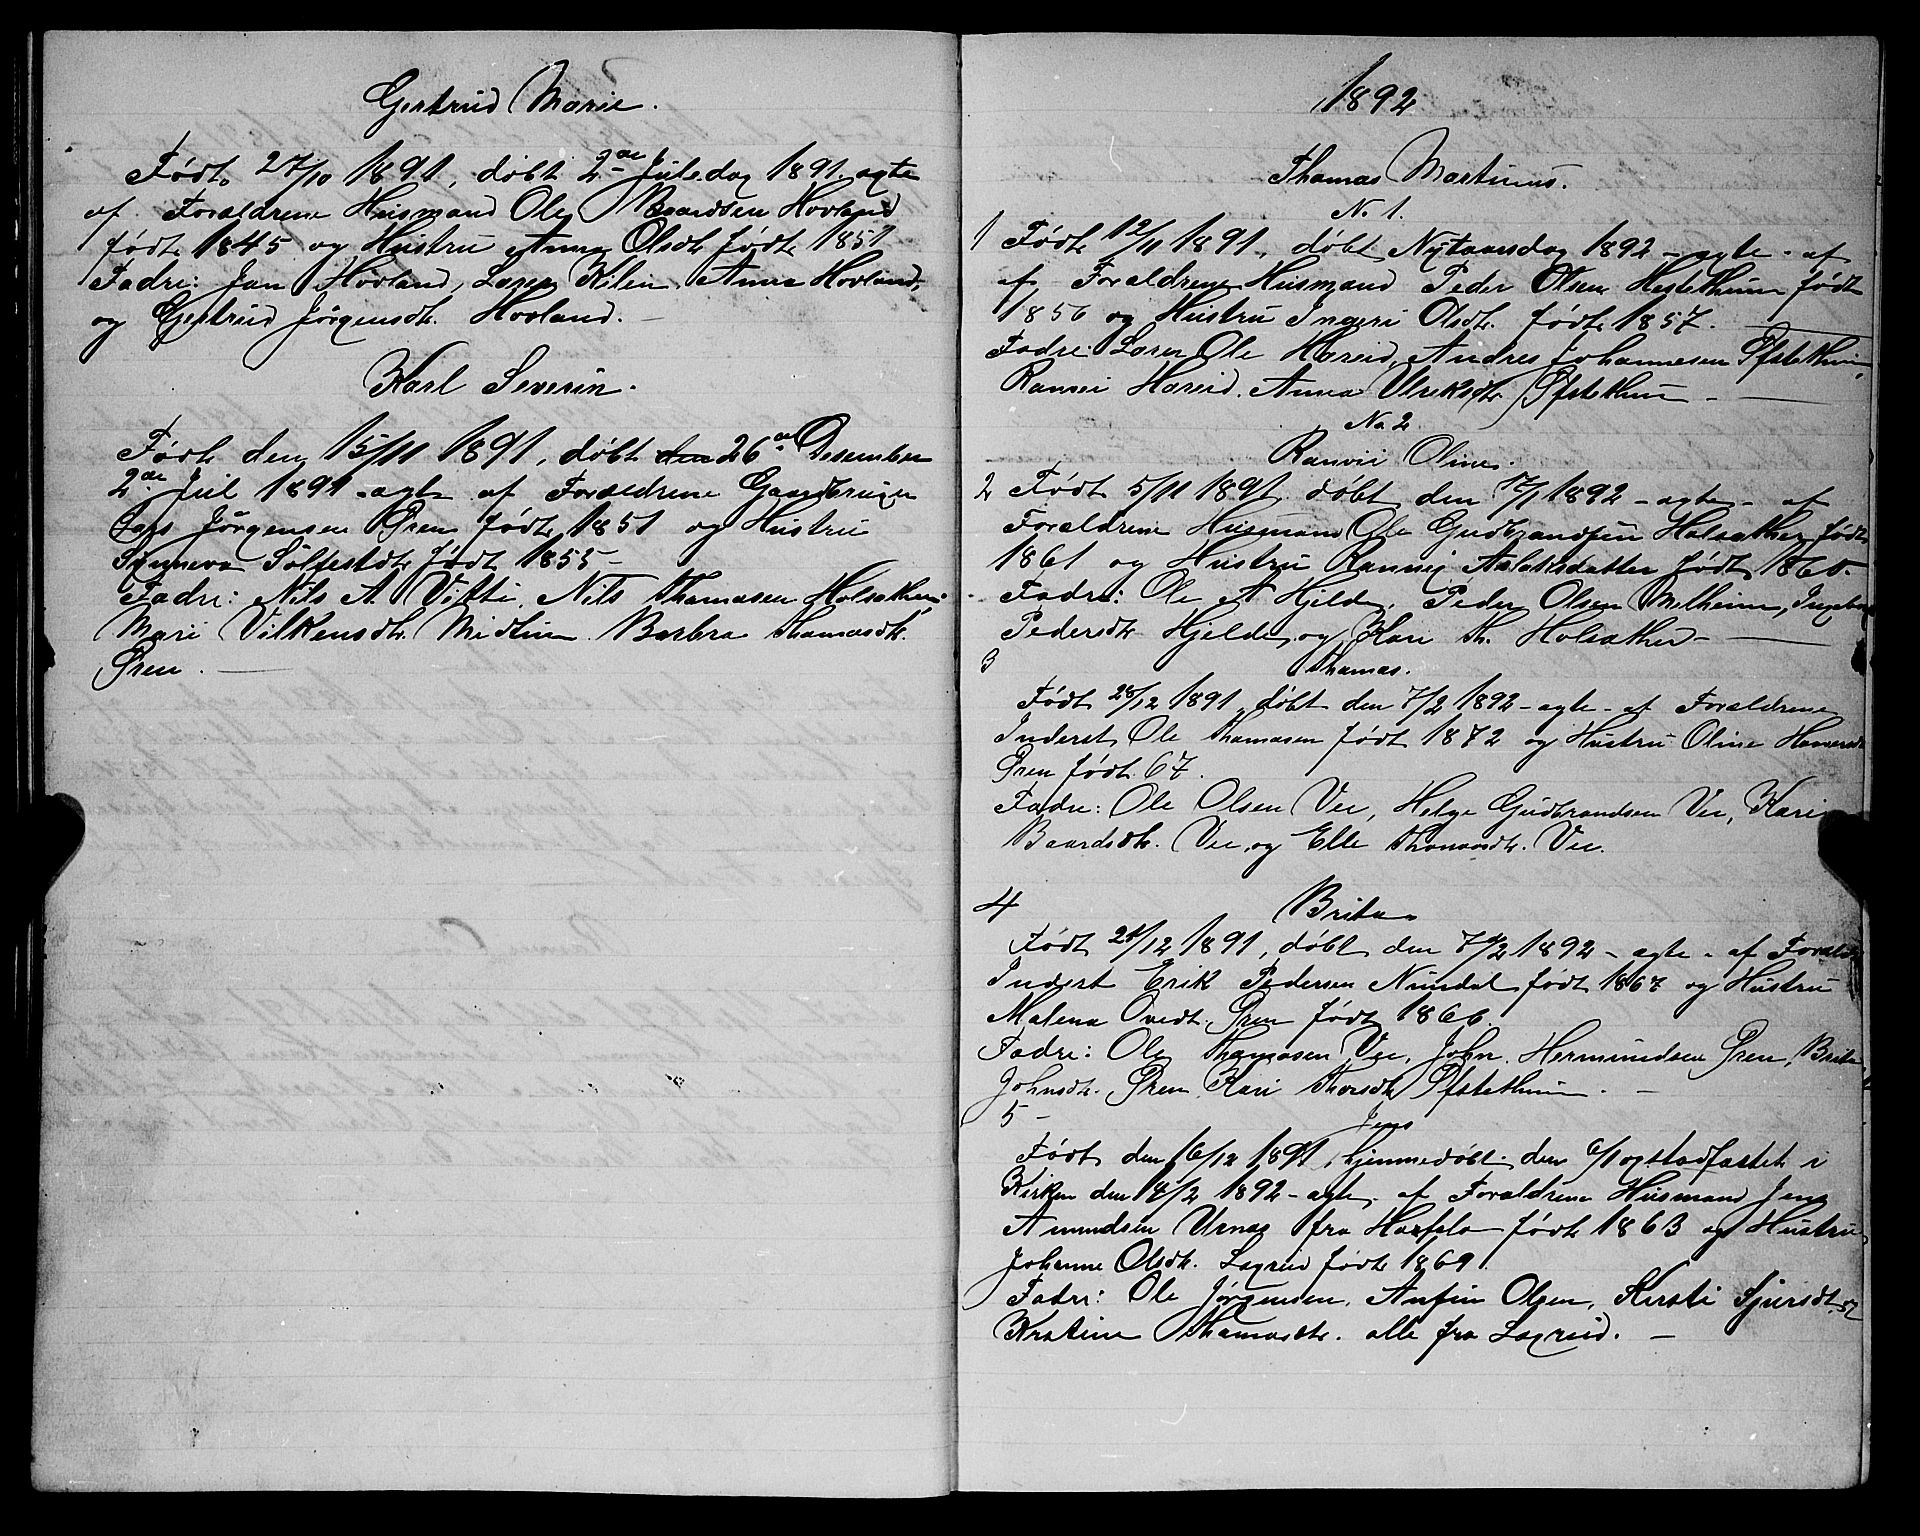 Gertrud Marie.
Født 27/10 1891, døbt 2den Juledag 1891. agte
af Foraldrene Husmand Ole Baardsen Hovland
født 1845 og Hustru Anna Olsdt. født 1851
Fadre: Jan Hovland, Kilen, Anna Hovland,
og Gertrud Jørgensdt. Hovland. —
Karl Severin.
Født den 15/11 1891, døbt den 26de Desember
2den Jul 1891 - agte af Foraldrene Gaardbruger
Lars Jørgensen Øren født 1851 og Hustru
Synneva Sølfestdt. født 1855 —
Fadre: Nils A. Vitti, Nils Thomasen Holsather,
Mari Vilkensdt. Midtun. Barbra Thomasdt.
Øren. —
1892
Thomas Martinus.
No 1.
1 Født 12/11 1891, døbt Nytaarsdag 1892 - agte - af
af Foraldrene Husmand Peder Olsen Hestethun født
1856 og Hustru Ingeri Olsdt. født 1857. —
Fadre: Ole Hareid, Andres Johannesen Øfstethun,
Ranvei Hareid. Anna Ulriksdt. Øfstethun — —
No 2
Ranvei Oline.
2 Født 5/11 1891 døbt den 17/1 1892 - agte - af
Foraldrene Husmand Ole Gudbrandsen Holsather født
1861 og Hustru Ranvei Aslaksdatter født 1860.
Fadre: Ole A Hjelde, Peder Olsen Melheim, Ingeborg
Pedersdt. Hjelde, og Kari Th. Holsather — —
3 Thomas.
Født 28/12 1891, døbt den 7/2 1892 - agte - af Foraldrene
Inderst Ole Thomasen født 1872 og Hustru Oline
Øren født 67.
Fadre: Ole Olsen Vee, Helge Gudbrandsen Vee, Kari
Baardsdt. Vee, og Elle Thomasdt. Vee.
4 Brita
Født 21/12 1891, døbt den 7/2 1892 - agte - af Forald.
Inderst Erik Pedersen Nundal født 1867 og Hustru
Malena Øren født 1866.
Fadre: Ole Thomasen Vee, John Hermundsen Øren, Brita
Johnsdt. Øren Kari Thorsdt. Øfstethun. —
5 — Jens
Født den 16/12 1891, hjemmedøbt den 6/1 og stadfastet i
Kirken den 14/2 1892 - agte. af Foraldrene Husmand Jens
Amundsen Urnas fra Hafslo født 1863 og Hustru
Johanne Olsdt. Lagreid født 1869.
Fadre: Ole Jørgensen, Anfin Olsen, Kersti Sjursdt. og
Kristine Thomasdt. alle fra Lagreid. —